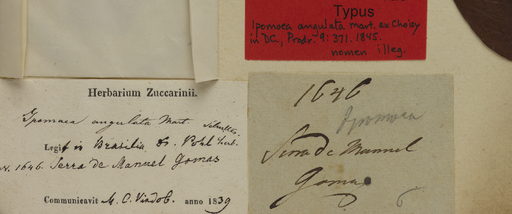 Typus
Ipomoea angulata mart. ex Choisy
in DC, Prodr. 9: 371. 1845.
nomen illeg.
Herbarium Zuccarinii.
Ipomaea angulata Mart.
Legit in Brasilia Dr. Pohl
N. 1646. Serra de Manuel Gomas
Communicavit M. C. Vindob. anno 1839
1646
Ipomoea
Serra de Manuel
Gomas